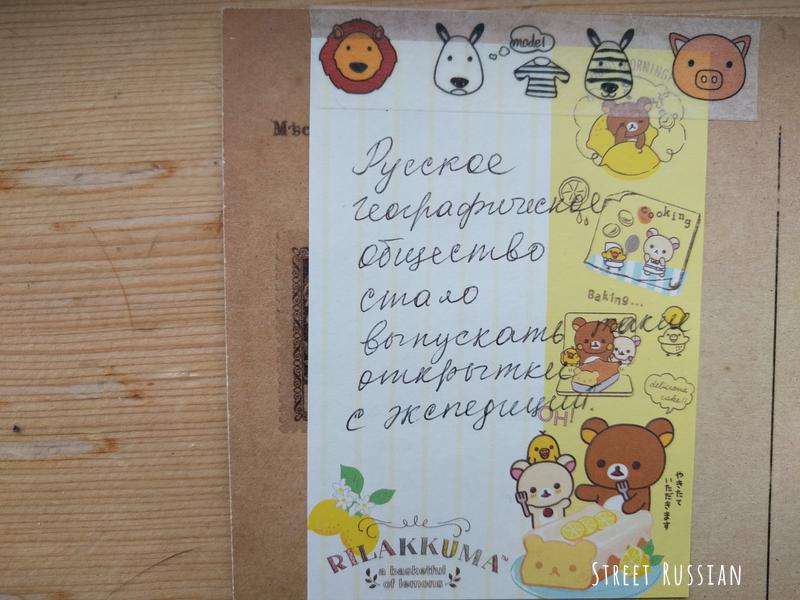 model
MORNING!
Мъсс
Русское
географическое
общество
стало
выпускать такие
открытки
с экспедиций.
cooking
Baking...
delicious
cake!!
OH!
やきたて
いただきます
RILAKKUMA™
a basketful
of lemons
STREET RUSSIAN